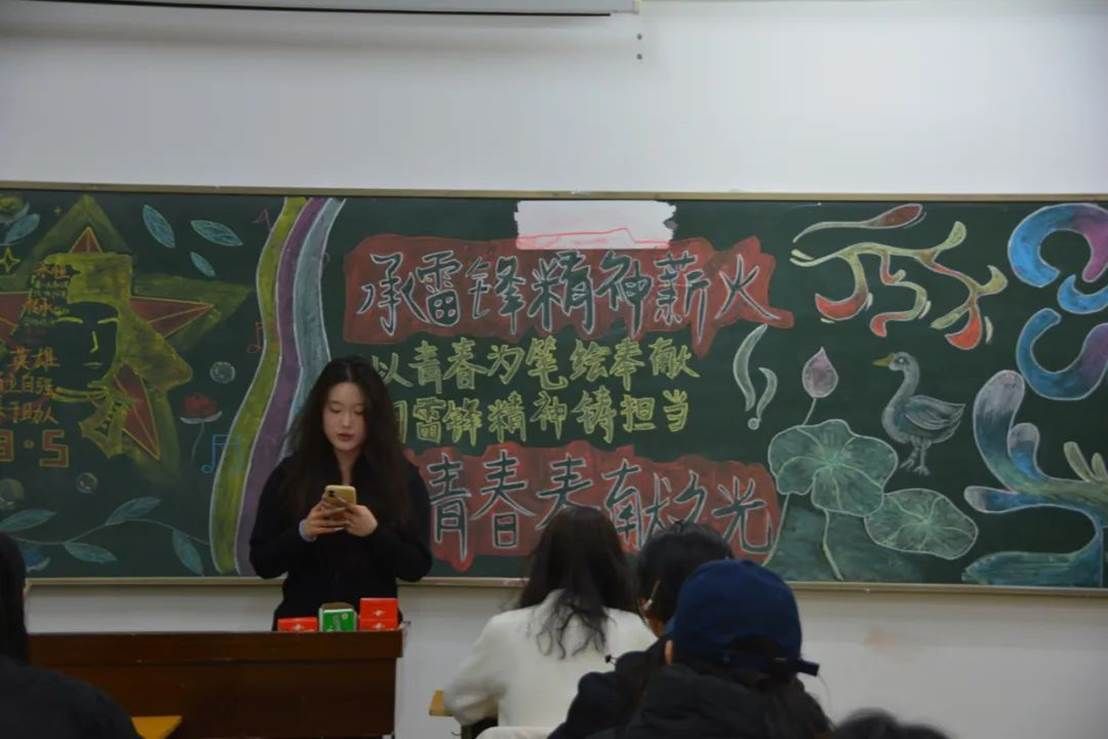 英雄
3·5
承雷锋精神薪火
以青春为笔绘奉献
雷锋精神铸担当
青春奉献之光